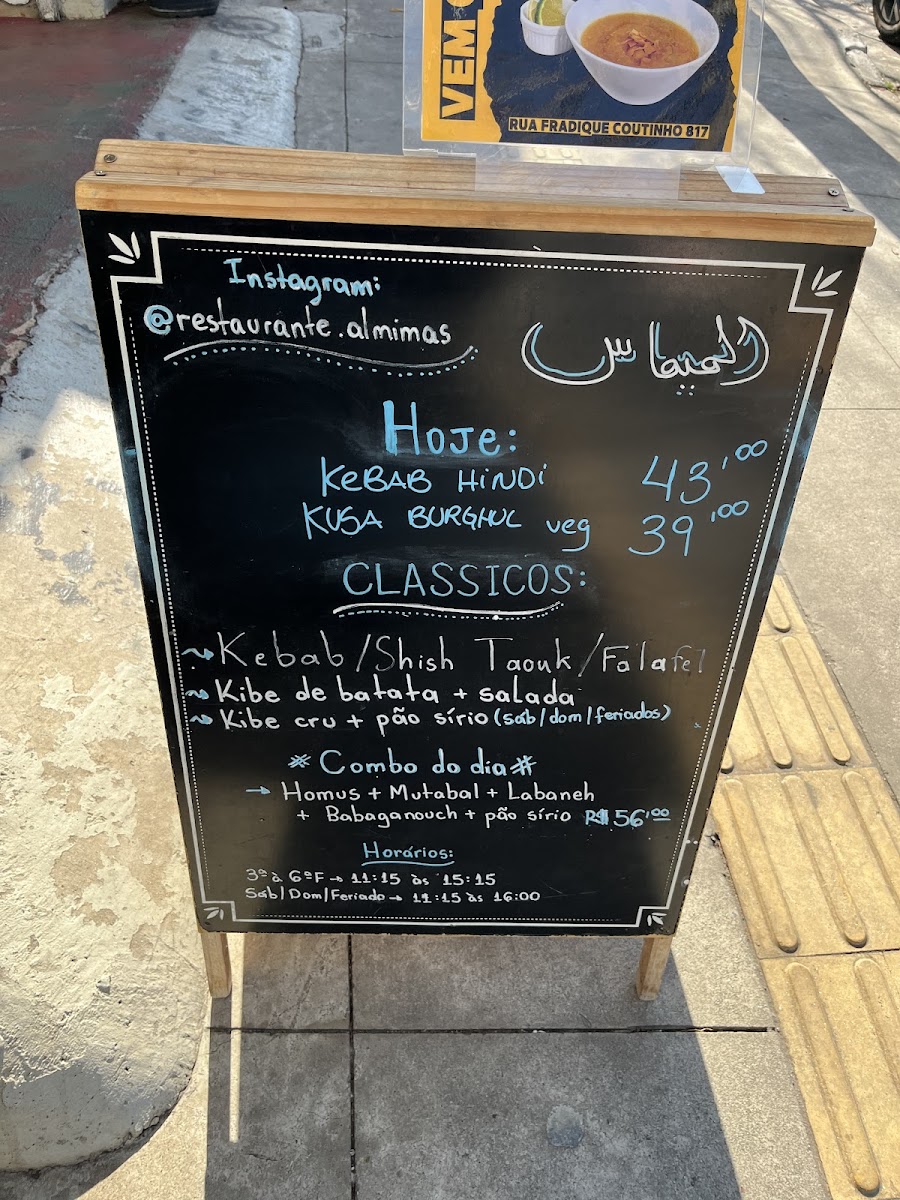 VEM
RUA FRADIQUE COUTINHO 817
Instagram:
@restaurante.almimas
الميماس
Hoje:
KEBAB HiNDi 43,00
KUSA BURGHUL veg 39,00
CLASSICOS:
Kebab/Shish Taouk/Falafel
Kibe de batata + salada
Kibe cru + pão sírio (sáb/dom/feriados)
* Combo do dia *
→ Homus + Mutabal + Labaneh
+ Babaganouch + pão sírio R$ 56,00
Horários:
3ª à 6ªF → 11:15 às 15:15
Sáb/Dom/Feriado → 11:15 às 16:00